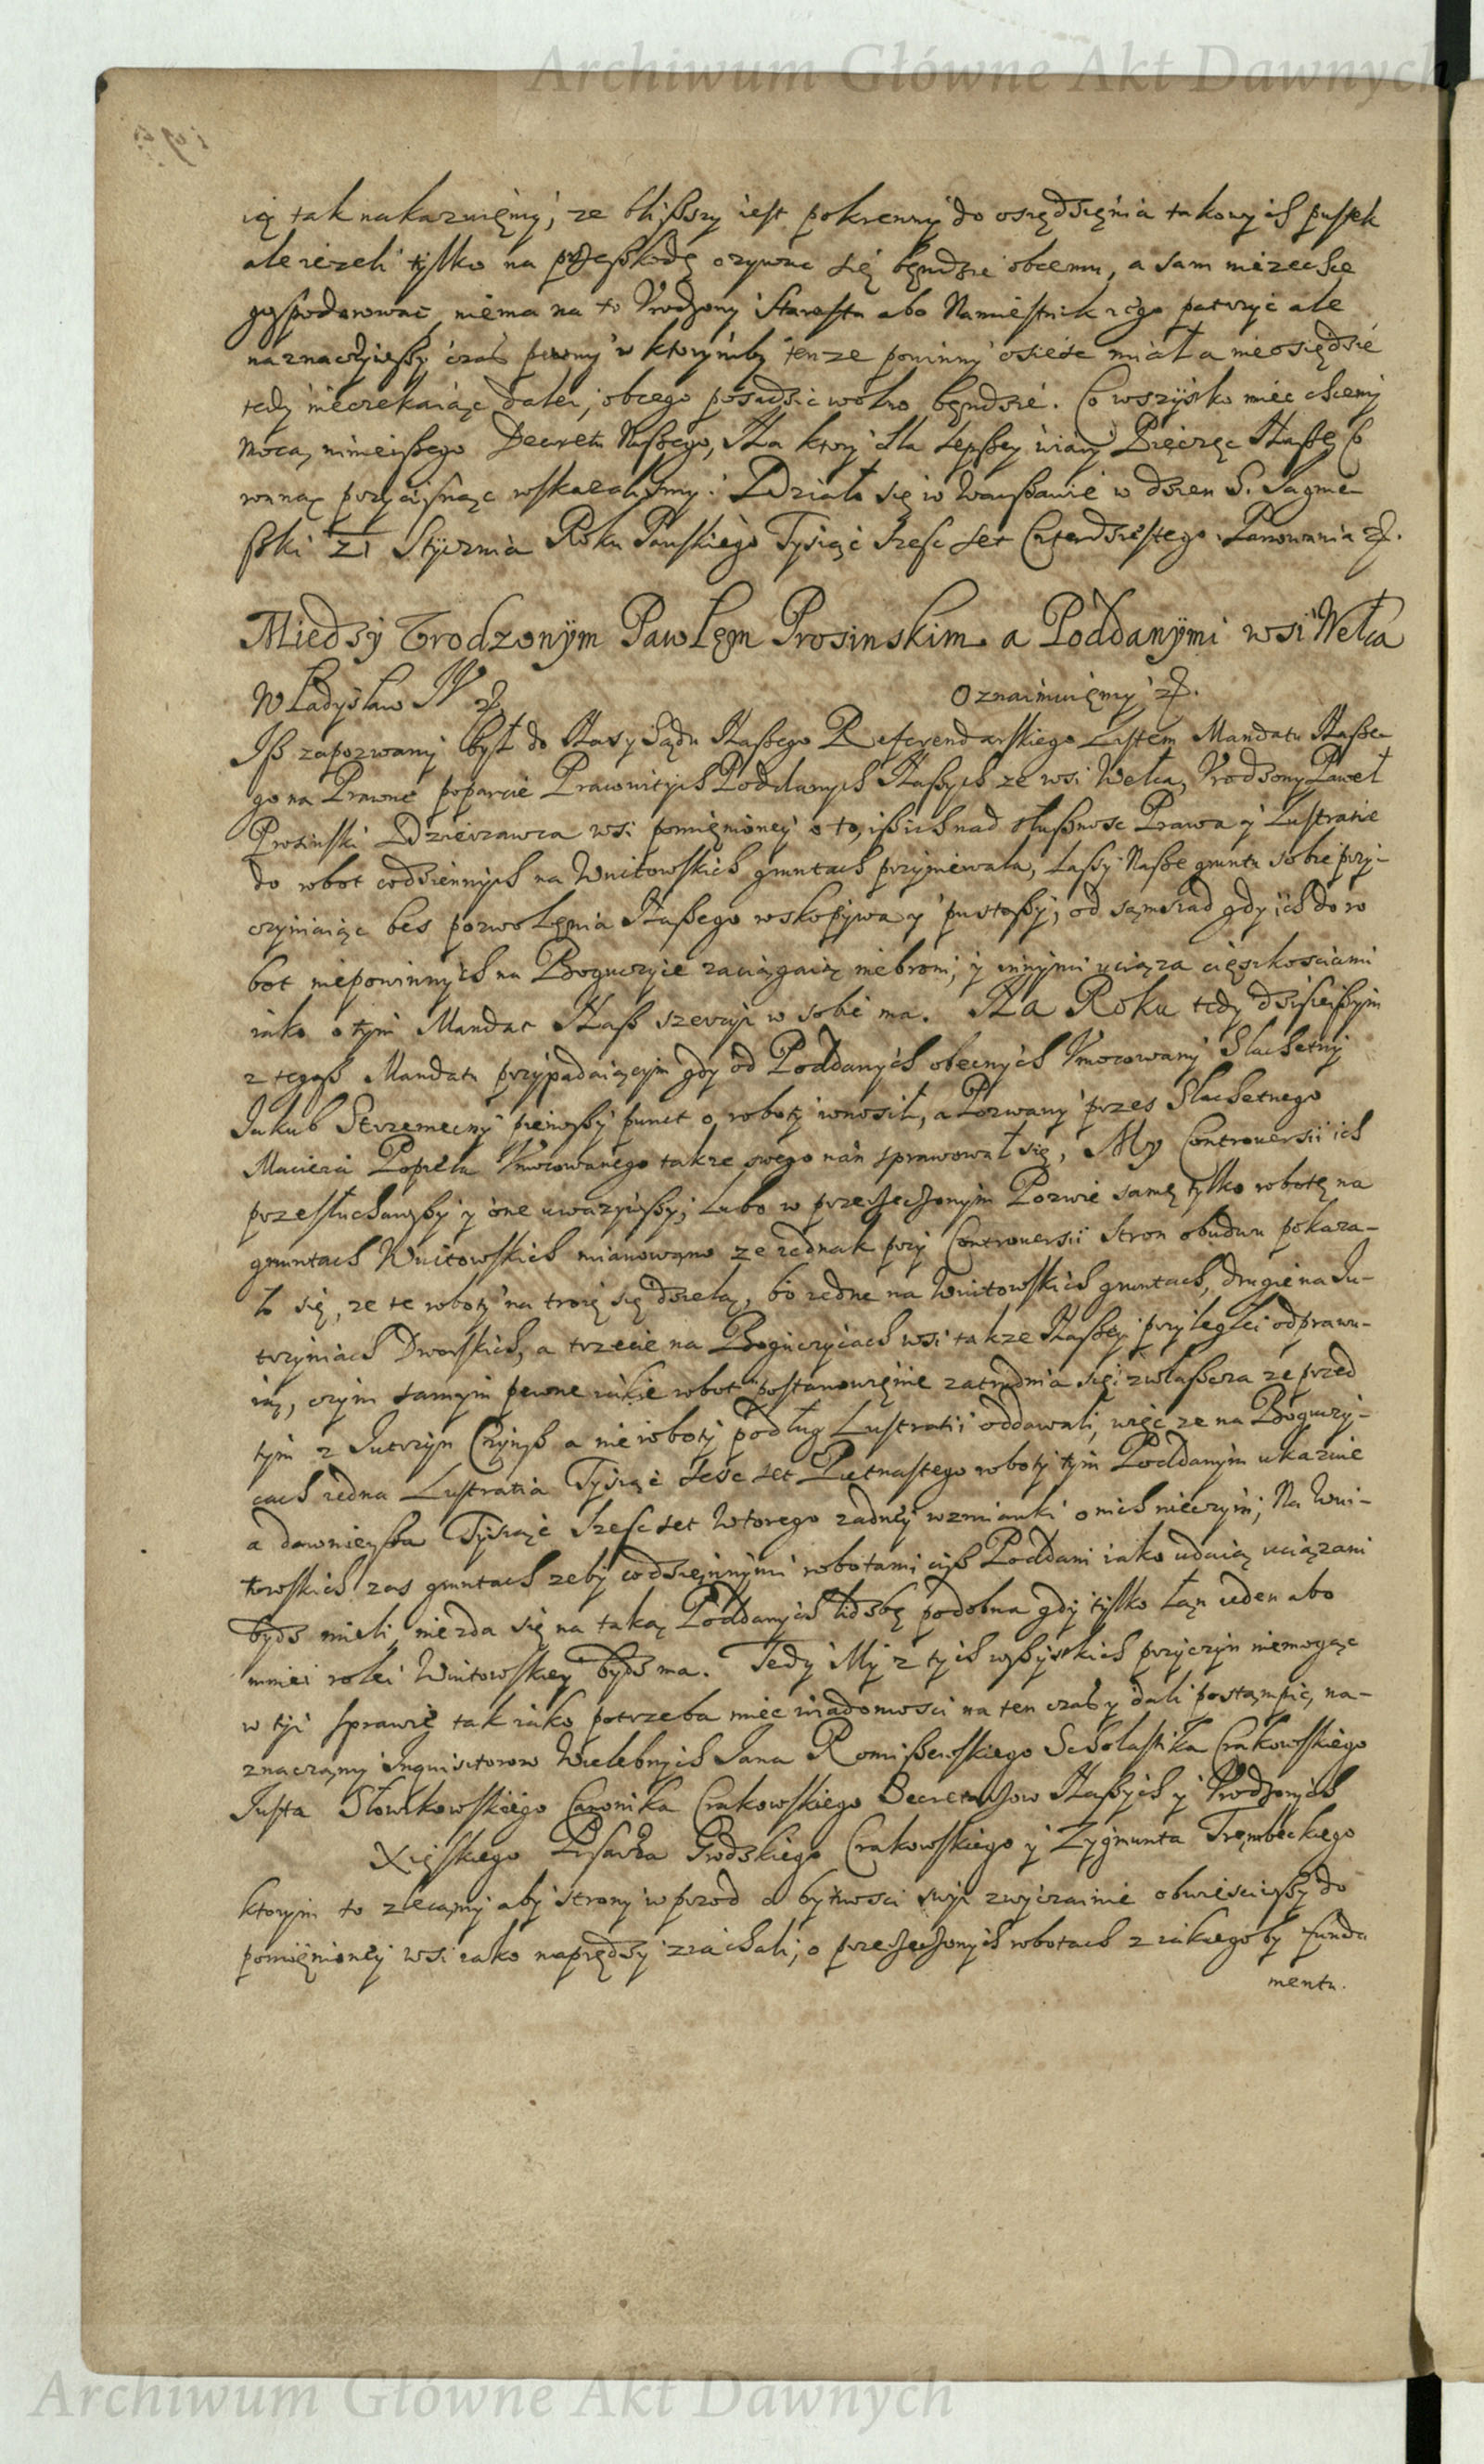 Archiwum Główne Akt Dawnych
ią tak nakazuięmy, ze bliższy iest pokrewny do osiędzięnia takowych pustek
ale ieżeli tylko na przeszkodę ozywac się będzie obcemu, a sam niezechce
gospodarować niema na to Vrodzony Starosta abo Namiestnik iego patrzyć ale
naznaczywszy czas pewny w ktorymby tenze powinny osieśc miał a nieosiędzie
tedy nieczekaiąc daley, obcego posadzic wolno będzie. Co wszystko miec chcemy
mocą ninieiszego Decretu Naszego, Na ktory dla lepszey wiary Pieczęc Naszę Co
ronną przycisnąc wskazalismy. Działo się w Warszawie w dzien S. Iagnie-
szki 21 Stycznia Roku Panskiego Tysiąc Szesc Set Czterdziestego Panowania etc.
Miedzy Vrodzonym Pawłęm Prosinskim a Poddanymi wsi Wełca
Władysław IV etc. Oznaimuięmy etc.
Isz zapozwany był do Nas y Sądu Naszego Referendarskiego Listem Mandatu Nasze-
go na Prawne poparcie Pracowitych Poddanych Naszych ze wsi Wełca, Vrodzony Paweł
Prosinski Dzierzawca wsi pomięnioney o to, isz ich nad słusznosc Prawa y Lustratie
do robot codziennych na Wuitowskich gruntach przyniewala, Lassy Nasze gruntu sobie przy-
czyniaiąc bes pozwolęnia Naszego wskopywa y pustoszy, od sąmsiad gdy ich do ro
bot niepowinnych na Boguczyce zaciągaią niebroni, y innymi uciąza cięszkosciami
iako o tym Mandat Nasz szerzy w sobie ma. Na Roku tedy dzisieiszym
z tegosz Mandatu przypadaiącym gdy od Poddanych obecnych Vmocowany Slachetny
Iakub Strzemecny pierwszy punct o roboty wnosił, a Pozwany przes Slachetnego
Macieia Popiela Vmocowanego takze swego nań sprawował się, My Controuersii ich
przesłuchawszy y one uwazywszy, Lubo w przerzeczonym Pozwie samę tylko robotę na
gruntach Wuitowskich mianowano ze iednak przy Controuersii stron obudwu pokaza-
ło się, ze te roboty na troie się dzielą, bo iedne na Wuitowskich gruntach, drugie na Iu-
trzyniach Dworskich, a trzecie na Boguczycach wsi takze Naszey przyległei odprawu-
ią, czym samym pewne iakie robot postanowięnie zatrudnia się zwłaszcza ze przed
tym z Iutrzyn Czynsz a nie roboty podług Lustratii oddawali, więc ze na Boguczy-
cach iedna Lustratia Tysiąc Sesc set Piętnastego roboty tym Poddanym ukazuie
a dawnieysza Tysiąc Szesc set Wtorego zadney wzmianki o nich nieczyni, Na Wui-
towskich zas gruntach zeby codzięnnymi robotami cisz Poddani iako udaią uciązani
bydz mieli, niezda się na taką Poddanych lidzbę podobna gdy tylko łan ieden abo
mniei rolei Wuitowskiey bydz ma. Tedy My z tych wszystkich przyczyn niemogąc
w tyi sprawie tak iako potrzeba miec wiadomosci na ten czas y dali postąmpic, na-
znaczamy inquisitorow Wielebnych Iana Romiszewskiego Scholastika Crakowskiego
Iusta Słowikowskiego Canonika Crakowskiego Secretarzow Naszych y Vrodzonych
Xięskiego Pisarza Grodskiego Crakowskiego y Zygmunta Trembeckiego
ktorym to zlecamy aby strony wprzod o bytnosci swyi zwyczainie obwiesciwszy do
pomięnioney wsi iako naprędzy ziachali, o przerzeczonych robotach z iakiego by funda
mentu.
Archiwum Główne Akt Dawnych